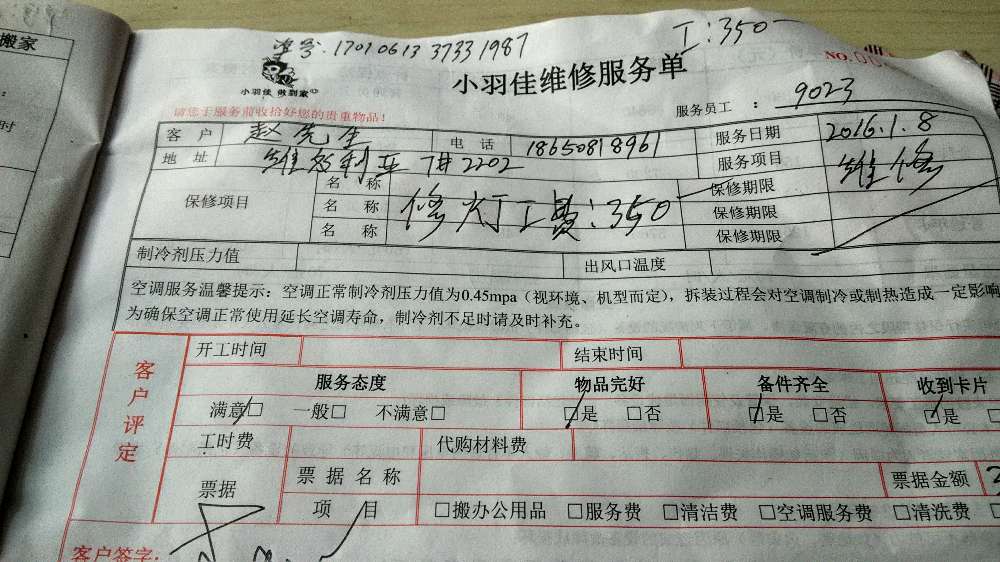 搬家
时
准号:1701061337331987
工:350
小羽佳 做到家
小羽佳维修服务单
NO.00
请您于服务前收拾好您的贵重物品!
服务员工 : 9023
客 户 赵先生 电 话 18650818961 服务日期 2016.1.8
地 址 维多利亚 7#2202 服务项目 维修
保修项目 名 称 保修期限
名 称 修灯工费:350 保修期限
名 称 保修期限
制冷剂压力值 出风口温度
空调服务温馨提示:空调正常制冷剂压力值为0.45mpa(视环境、机型而定),拆装过程会对空调制冷或制热造成一定影响
为确保空调正常使用延长空调寿命,制冷剂不足时请及时补充。
客户评定
开工时间 结束时间
服务态度 物品完好 备件齐全 收到卡片
满意□ 一般□ 不满意□ □是 □否 □是 □否 □是
工时费 代购材料费
票据 票 据 名 称 票据金额
项 目 □搬办公用品 □服务费 □清洁费 □空调服务费 □清洗费
客户签字: